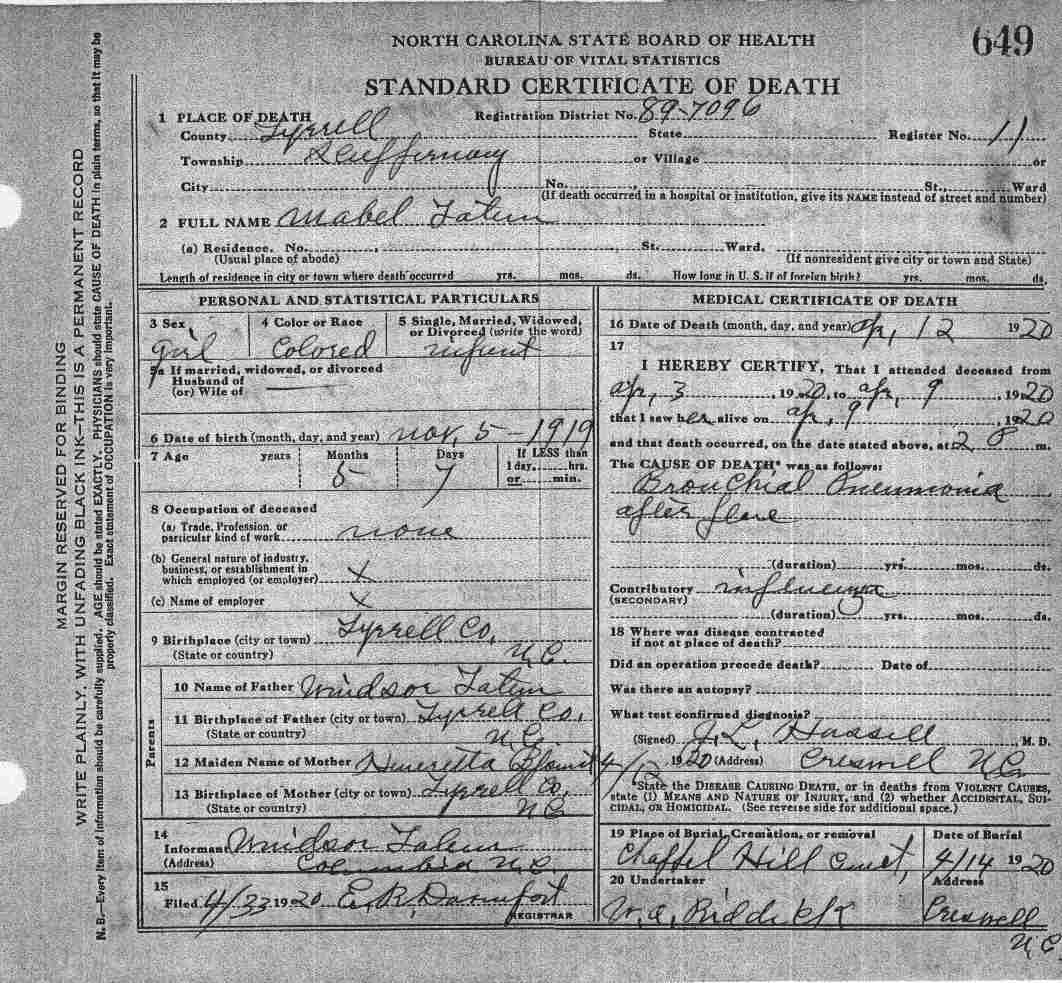 649
NORTH CAROLINA STATE BOARD OF HEALTH
BUREAU OF VITAL STATISTICS
STANDARD CERTIFICATE OF DEATH
1 PLACE OF DEATH Registration District No. 89-7096
County Tyrrell State Register No. 11
Township Scuppernong or Village or
City No. , St., Ward
(If death occurred in a hospital or institution, give its NAME instead of street and number)
2 FULL NAME Mabel Tatem
(a) Residence. No. , St. Ward.
(Usual place of abode) (If nonresident give city or town and State)
Length of residence in city or town where death occurred yrs. mos. ds. How long in U. S. if of foreign birth? yrs. mos. ds.
PERSONAL AND STATISTICAL PARTICULARS
3 Sex 4 Color or Race 5 Single, Married, Widowed, or Divorced (write the word)
Girl Colored infant
5a If married, widowed, or divorced
Husband of
(or) Wife of
6 Date of birth (month, day, and year) Nov, 5-1919
7 Age years Months Days If LESS than
1 day, hrs.
or min.
5 7
8 Occupation of deceased
(a) Trade, Profession, or
particular kind of work none
(b) General nature of industry,
business, or establishment in
which employed (or employer) X
(c) Name of employer X
9 Birthplace (city or town) Tyrrell Co,
(State or country) N.C.
Parents
10 Name of Father Windsor Tatem
11 Birthplace of Father (city or town) Tyrrell Co,
(State or country) N.C.
12 Maiden Name of Mother Heneretta
13 Birthplace of Mother (city or town) Tyrrell Co,
(State or country) N.C.
14
Informant Windsor Tatem
(Address) Columbia N.C.
15
Filed 4/23 1920 E. R. Davenport
REGISTRAR
MEDICAL CERTIFICATE OF DEATH
16 Date of Death (month, day, and year) Apr, 12 1920
17
I HEREBY CERTIFY, That I attended deceased from
Apr, 3, 1920, to Apr, 9, 1920
that I saw her alive on Apr, 9, 1920
and that death occurred, on the date stated above, at 2 P m.
The CAUSE OF DEATH* was as follows:
Bronchial Pneumonia
after flue
(duration) yrs. mos. ds.
Contributory influenza
(SECONDARY)
(duration) yrs. mos. ds.
18 Where was disease contracted
if not at place of death?
Did an operation precede death? Date of
Was there an autopsy?
What test confirmed diagnosis?
(Signed) J. L. Hassell M. D.
4/12 1920 (Address) Creswell N.C.
*State the DISEASE CAUSING DEATH, or in deaths from VIOLENT CAUSES,
state (1) MEANS AND NATURE OF INJURY, and (2) whether ACCIDENTAL, SUI-
CIDAL, OR HOMICIDAL. (See reverse side for additional space.)
19 Place of Burial, Cremation, or removal Date of Burial
Chappel Hill Cmet, 4/14 1920
20 Undertaker Address
W. A. Riddick Creswell
N.C.
MARGIN RESERVED FOR BINDING
WRITE PLAINLY, WITH UNFADING BLACK INK—THIS IS A PERMANENT RECORD
N. B.—Every item of information should be carefully supplied. AGE should be stated EXACTLY. PHYSICIANS should state CAUSE OF DEATH in plain terms, so that it may be
properly classified. Exact statement of OCCUPATION is very important.